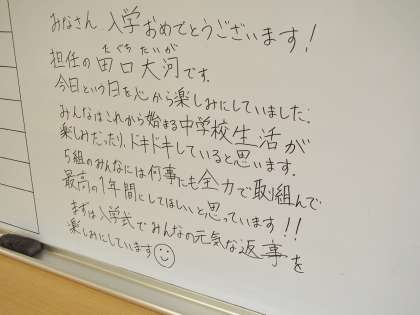 みなさん 入学おめでとうございます!
たぐち たいが
担任の 田口 大河 です。
今日という日を心から楽しみにしていました。
みんなはこれから始まる中学校生活が
楽しみだったり、ドキドキしていると思います。
5組のみんなには何事にも全力で取組んで
最高の1年間にしてほしいと思っています!!
まずは入学式でみんなの元気な返事を
楽しみにしています